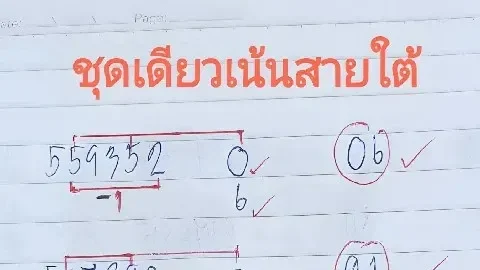 ชุดเดียวเน้นสายใต้
559352 0 06
-1 6